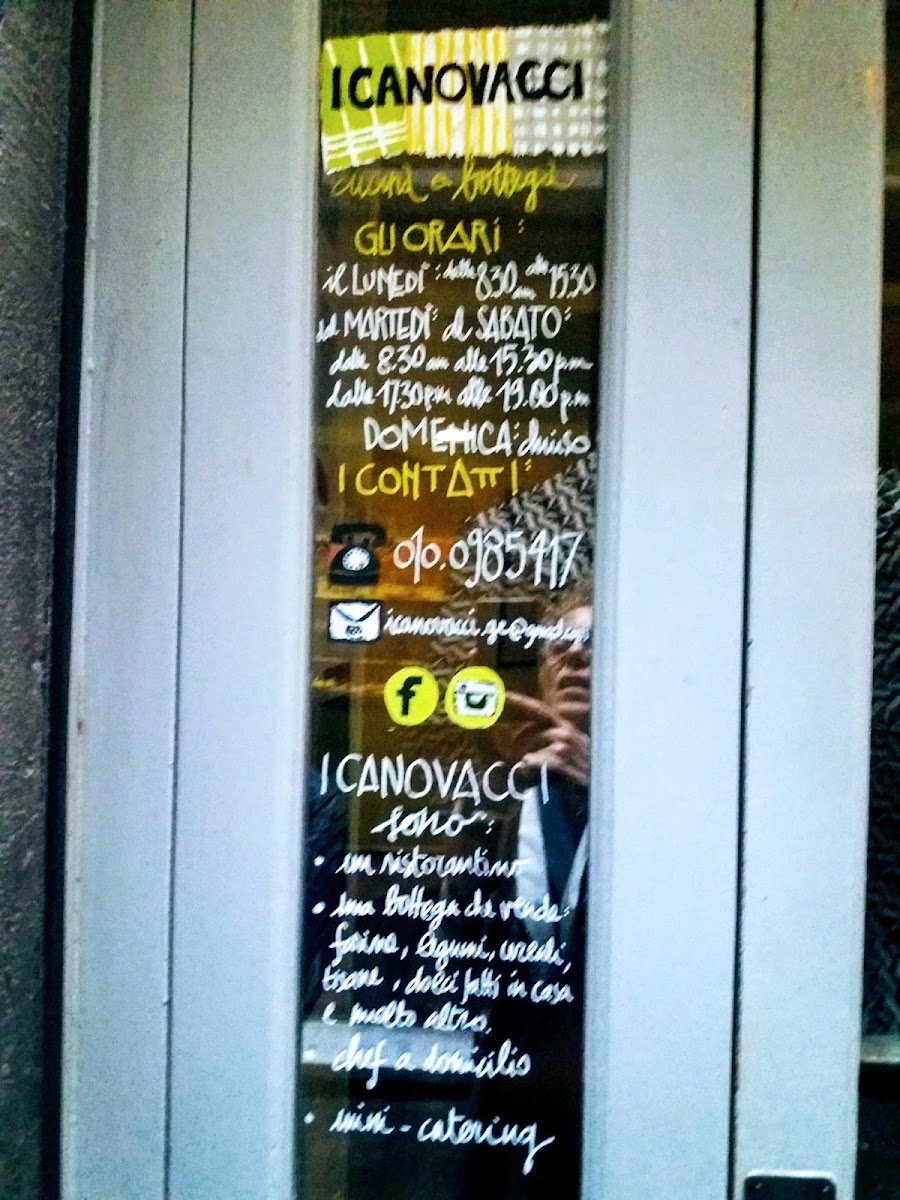 I CANOVACCI
cucina e bottega
GLI ORARI:
il LUNEDÌ: dalle 8.30 am alle 15.30
dal MARTEDÌ al SABATO:
dalle 8.30 am alle 15.30 pm
dalle 17.30 pm alle 19.00 pm
DOMENICA: chiuso
I CONTATTI:
010.0985417
icanovacci.ge@
f
I CANOVACCI
sono:
• un ristorantino
• una bottega che vende:
farine, legumi, cereali,
tisane, dolci fatti in casa
e molto altro,
• chef a domicilio
• mini-catering